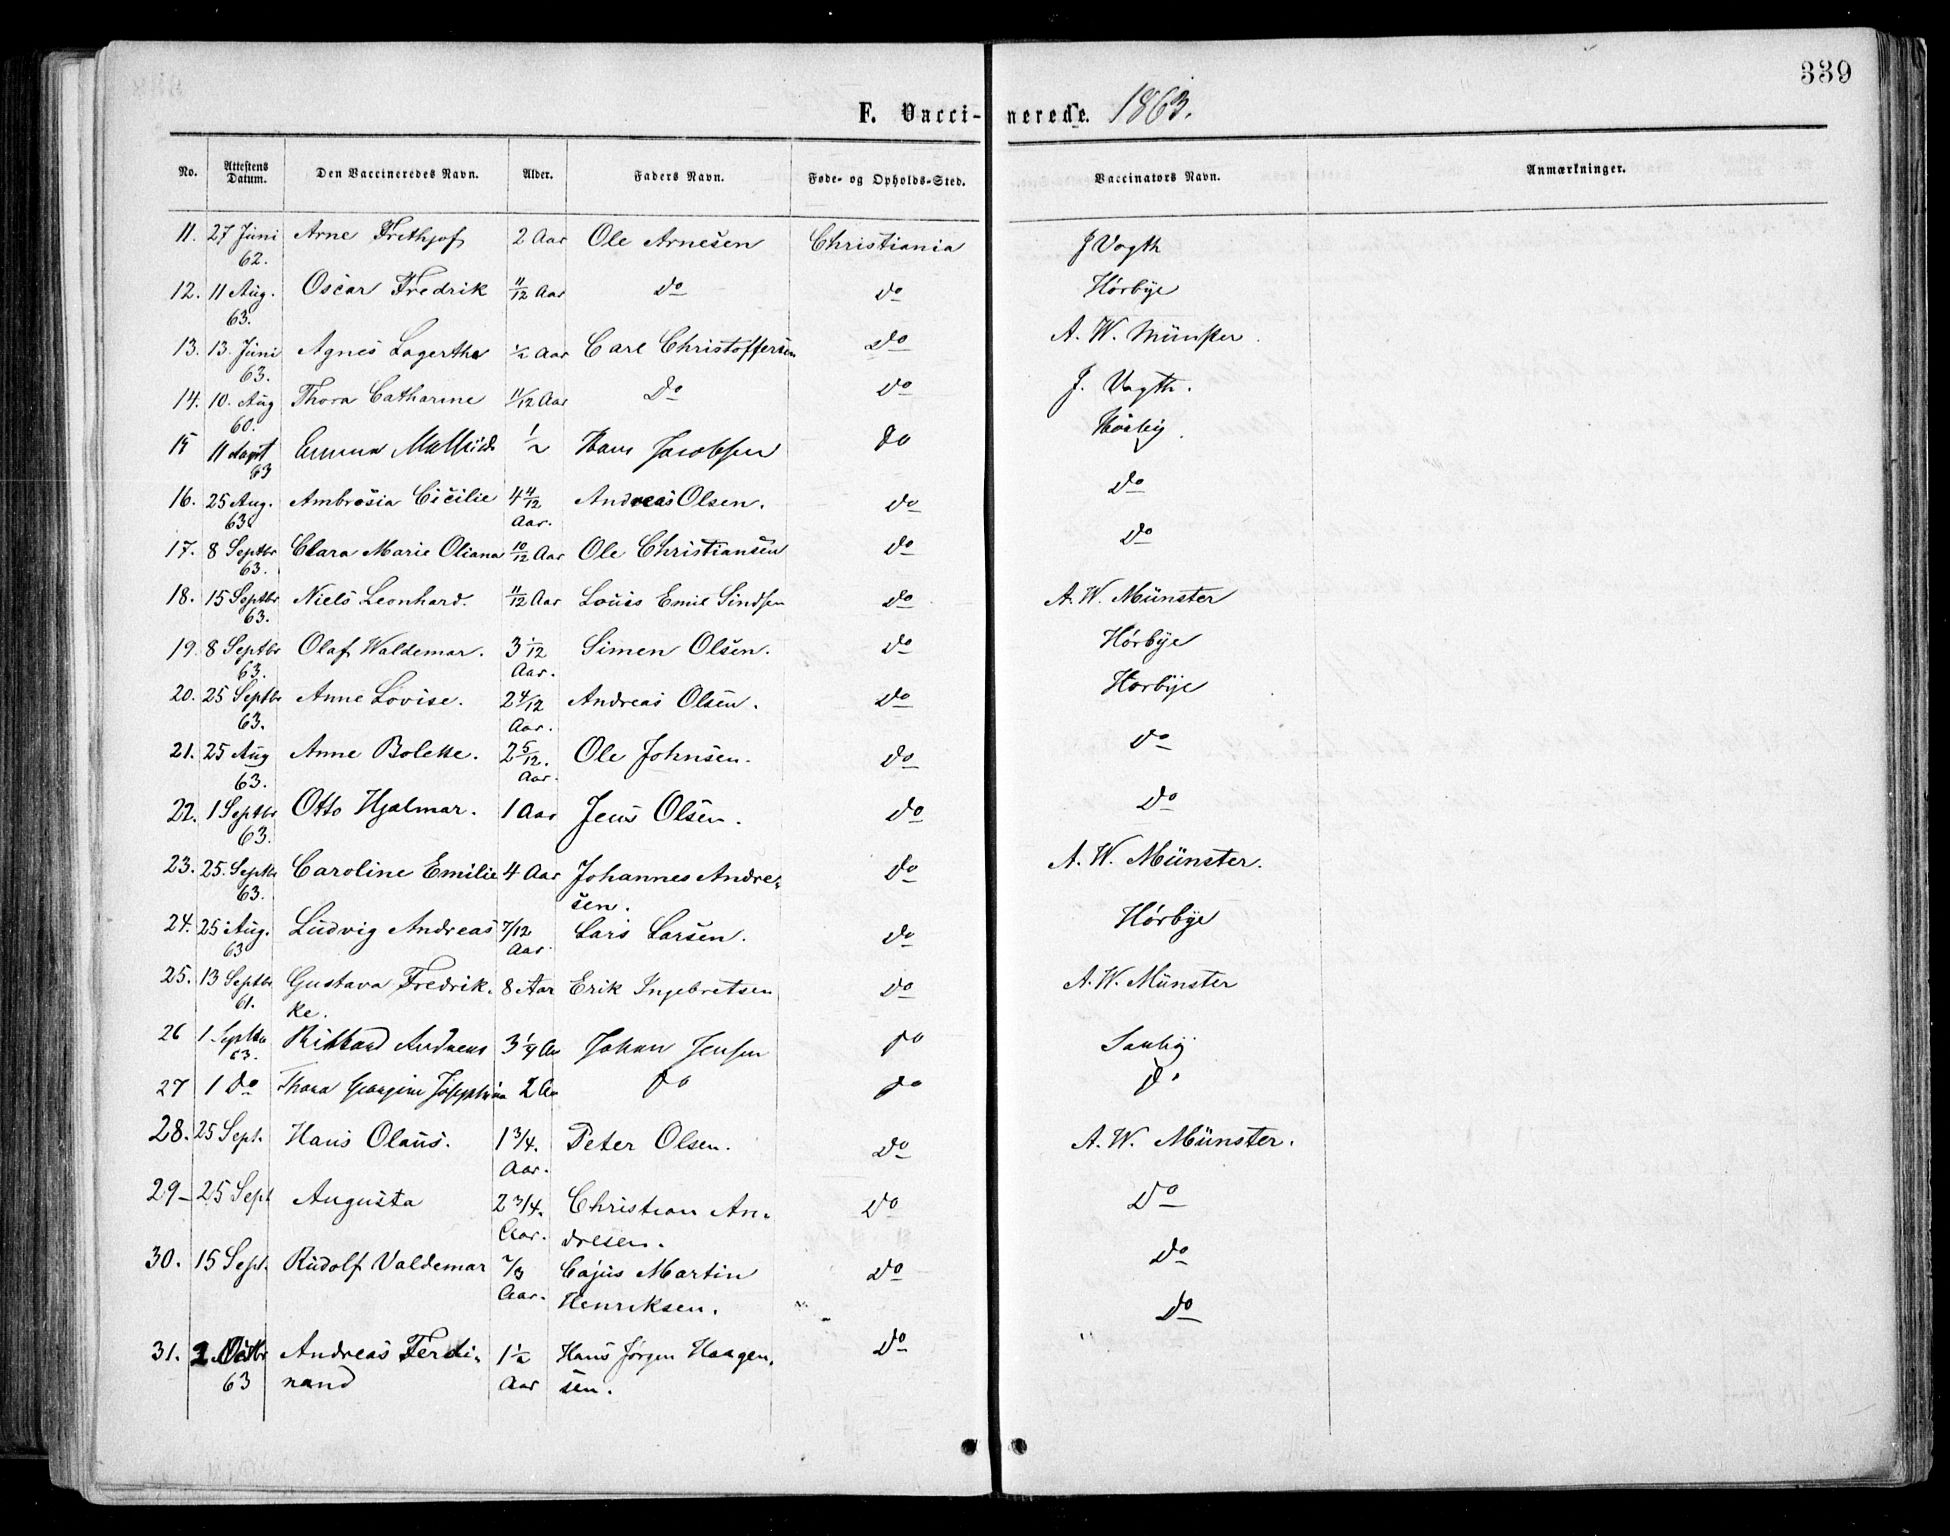 339
F. Vaccinerede. 1863.
No. Attestens Datum. Den Vaccineredes Navn. Alder. Faders Navn. Føde- og Opholds-Sted. Vaccinators Navn. Anmærkninger.
11. 27 Juni Arne Frithjof 2 Aar Ole Arnesen Christiania J Vogth
62.
12. 11 Aug. Oscar Fredrik 11/12 Aar do do Hörbÿe
63.
13. 13. Juni Agnes Lagertha 1/2 Aar Carl Christoffersen do A. W. Münster
63.
14. 10. Aug Thora Catharine 11/12 Aar do do J. Vogth.
60.
15 11 August Emma Mathilde 1/2 Hans Jacobsen do Hörby
63
16. 25 Aug. Ambrosia Cicilie 4 11/12 Andreas Olsen. do do
63. Aar.
17. 8 Septbr Clara Marie Oliana 10/12 Aar Ole Christiansen do do
63.
18. 15 Septbr Niels Leonhard. 11/12 Aar Louis Emil Sindsen do A. W. Münster
63.
19. 8 Septbr Olaf Waldemar. 3 1/12 Simen Olsen. do Hörbÿe
63. Aar.
20. 25 Septbr Anne Lovise. 2 4/12 Andreas Olsen. do Hörbÿe
63. Aar.
21. 25 Aug Anne Bolette. 2 5/12. Ole Johnsen. do do
63. Aar.
22. 1 Septbr Otto Hjalmar. 1 Aar Jens Olsen. do do
63.
23. 25. Septbr Caroline Emilie 4 Aar Johannes Andre- do A. W. Münster.
63. sen.
24. 25 Aug. Ludvig Andreas 7/12 Lars Larsen. do Hörbÿe
63 Aar.
25. 13 Septbr Gustava Fredrik- 8 Aar Erik Ingebretsen do A. W. Münster
61. ke.
26 1. Septbr Rikhard Andreas 3 1/4 Aar Johan Jensen do
63.
27 1 do Thora Georgine Josephine 2 Aar do do do
28. 25 Sept. Hans Olaus. 1 3/4. Peter Olsen. do A. W. Münster.
Aar.
29- 25 Sept Augusta 2 3/4. Christian An- do do
Aar. dresen.
30. 15 Sept. Rudolf Valdemar Cajus Martin do do
Aar. Henriksen.
do
31. 2 Octbr Andreas Ferdi- 1 1/2 Hans Jørgen Haagen- do
63 nand Aar sen.